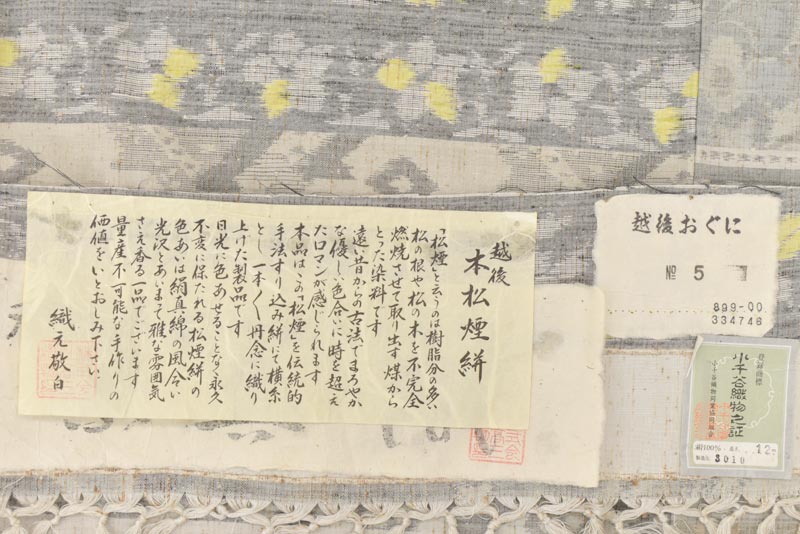 越後
本松煙絣
「松煙」と云うのは樹脂分の多い
松の根や松の木を不完全
燃焼させて取り出す煤から
とった染料です
遠い昔からの古法でまろやか
な優しい色合いに、時を超え
たロマンが感じられます
本品はこの「松煙」を伝統的
手法すり込み絣にて横糸
とし一本〱丹念に織り
上げた製品です
日光に色あせることなく永久
不変に保たれる松煙絣の
色あいは絹真綿の風合い
光沢とあいまて雅な雰囲気
さえ香る一品でございます
量産不可能な手作りの
価値をいとおしみ下さい。
織元敬白
越後おぐに
№ 5
899-00
334746
登録商標
小千谷織物之証
小千谷織物同業協同組合
絹100%
12
製造元 3010